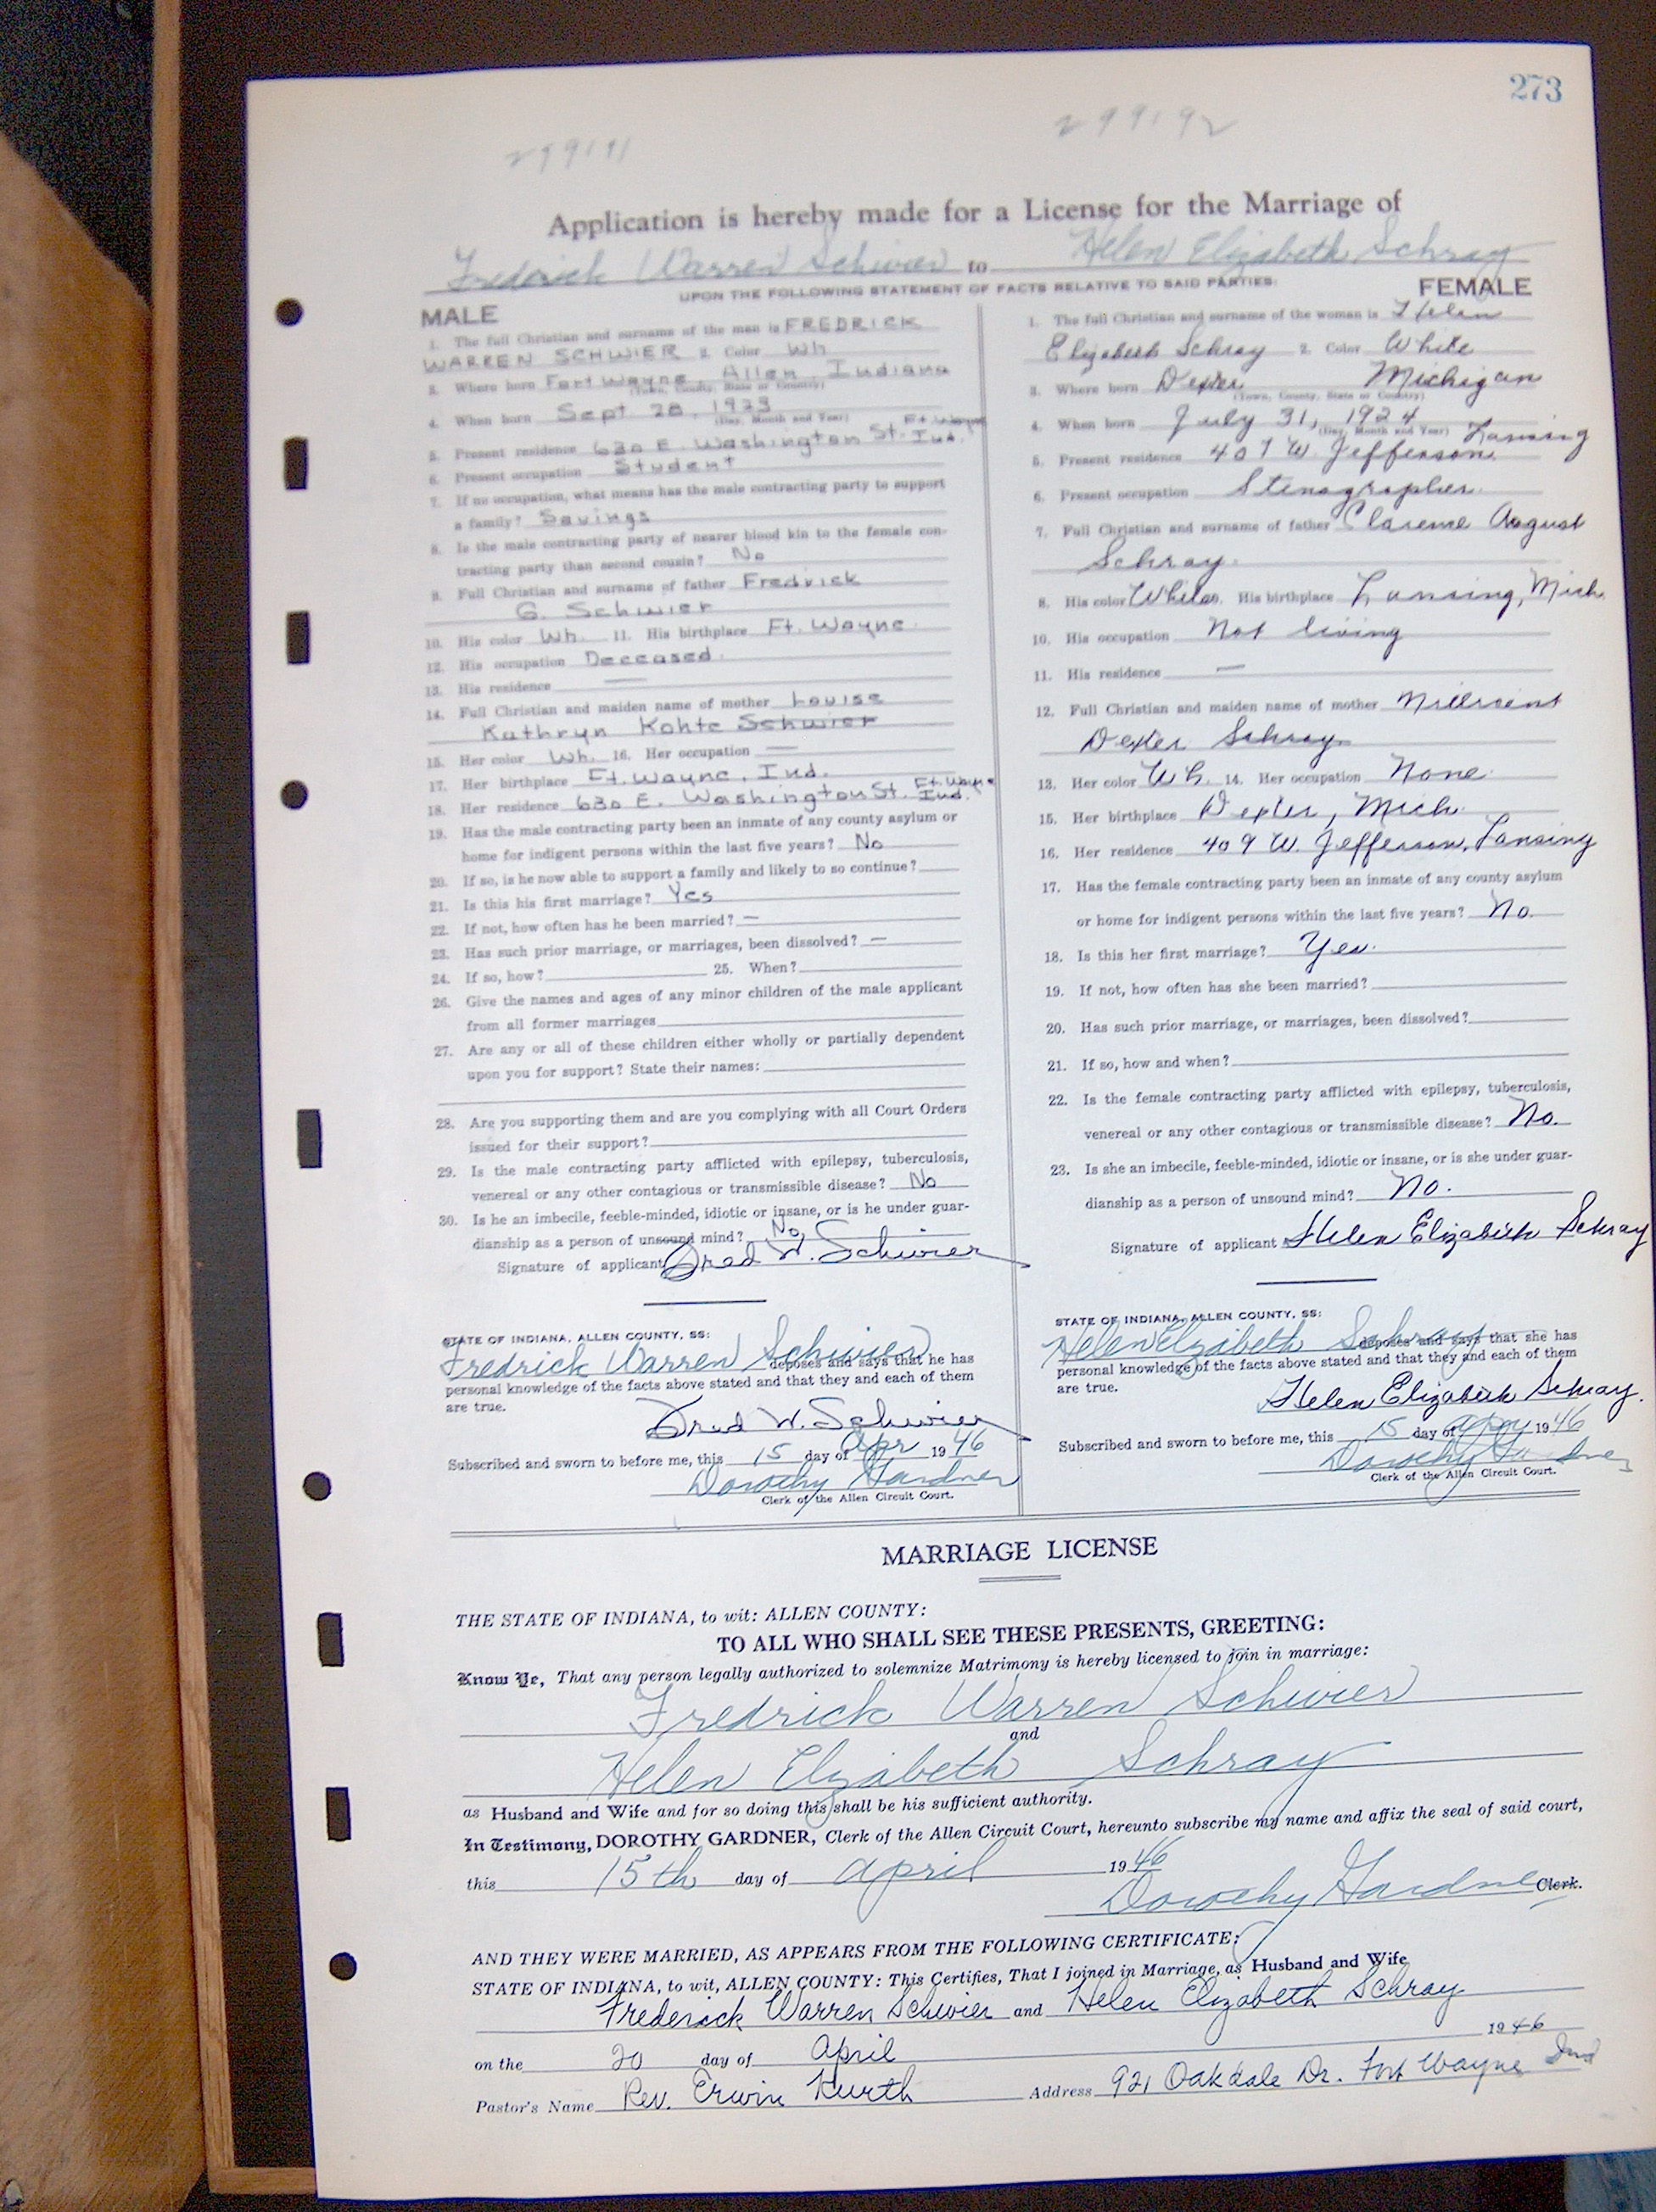 273
299191
299192
Application is hereby made for a License for the Marriage of
Frederick Warren Schwier to Helen Elizabeth Schray
UPON THE FOLLOWING STATEMENT OF FACTS RELATIVE TO SAID PARTIES:
MALE
1. The full Christian and surname of the man is FREDRICK
WARREN SCHWIER 2. Color Wh
3. Where born Fort Wayne Allen Indiana
(Town, County, State or Country)
4. When born Sept. 28, 1923
(Day, Month and Year)
5. Present residence 630 E. Washington St. Ft. Wayne Ind.
6. Present occupation Student
7. If no occupation, what means has the male contracting party to support
a family? Savings
8. Is the male contracting party of nearer blood kin to the female con-
tracting party than second cousin? No
9. Full Christian and surname of father Fredrick
G. Schwier
10. His color Wh. 11. His birthplace Ft. Wayne
12. His occupation Deceased
13. His residence —
14. Full Christian and maiden name of mother Louise
Kathryn Kohte Schwier
15. Her color Wh. 16. Her occupation —
17. Her birthplace Ft. Wayne, Ind.
18. Her residence 630 E. Washington St. Ft. Wayne Ind.
19. Has the male contracting party been an inmate of any county asylum or
home for indigent persons within the last five years? No
20. If so, is he now able to support a family and likely to so continue?
21. Is this his first marriage? Yes
22. If not, how often has he been married? —
23. Has such prior marriage, or marriages, been dissolved? —
24. If so, how? 25. When?
26. Give the names and ages of any minor children of the male applicant
from all former marriages
27. Are any or all of these children either wholly or partially dependent
upon you for support? State their names:
28. Are you supporting them and are you complying with all Court Orders
issued for their support?
29. Is the male contracting party afflicted with epilepsy, tuberculosis,
venereal or any other contagious or transmissible disease? No
30. Is he an imbecile, feeble-minded, idiotic or insane, or is he under guar-
dianship as a person of unsound mind? No
Signature of applicant Fred W. Schwier
STATE OF INDIANA, ALLEN COUNTY, SS:
Fredrick Warren Schwier deposes and says that he has
personal knowledge of the facts above stated and that they and each of them
are true.
Fred W. Schwier
Subscribed and sworn to before me, this 15 day of Apr 1946
Dorothy Gardner
Clerk of the Allen Circuit Court.
FEMALE
1. The full Christian and surname of the woman is Helen
Elizabeth Schray 2. Color White
3. Where born Dexter Michigan
(Town, County, State or Country)
4. When born July 31, 1924
(Day, Month and Year)
5. Present residence 409 W. Jefferson. Lansing
6. Present occupation Stenographer
7. Full Christian and surname of father Clarence August
Schray
8. His color White 9. His birthplace Lansing, Mich
10. His occupation Not living
11. His residence —
12. Full Christian and maiden name of mother Millicent
Dexter Schray
13. Her color Wh. 14. Her occupation None
15. Her birthplace Dexter, Mich
16. Her residence 409 W. Jefferson, Lansing
17. Has the female contracting party been an inmate of any county asylum
or home for indigent persons within the last five years? No.
18. Is this her first marriage? Yes.
19. If not, how often has she been married?
20. Has such prior marriage, or marriages, been dissolved?
21. If so, how and when?
22. Is the female contracting party afflicted with epilepsy, tuberculosis,
venereal or any other contagious or transmissible disease? No.
23. Is she an imbecile, feeble-minded, idiotic or insane, or is she under guar-
dianship as a person of unsound mind? No.
Signature of applicant Helen Elizabeth Schray
STATE OF INDIANA, ALLEN COUNTY, SS:
Helen Elzabeth Schray deposes and says that she has
personal knowledge of the facts above stated and that they and each of them
are true.
Helen Elizabeth Schray.
Subscribed and sworn to before me, this 15 day of Apr 1946
Dorothy Gardner
Clerk of the Allen Circuit Court.
MARRIAGE LICENSE
THE STATE OF INDIANA, to wit: ALLEN COUNTY:
TO ALL WHO SHALL SEE THESE PRESENTS, GREETING:
Know Ye, That any person legally authorized to solemnize Matrimony is hereby licensed to join in marriage:
Fredrick Warren Schwier
and
Helen Elzabeth Schray
as Husband and Wife and for so doing this shall be his sufficient authority.
In Testimony, DOROTHY GARDNER, Clerk of the Allen Circuit Court, hereunto subscribe my name and affix the seal of said court,
this 15th day of April 1946
Dorothy Gardner Clerk.
AND THEY WERE MARRIED, AS APPEARS FROM THE FOLLOWING CERTIFICATE:
STATE OF INDIANA, to wit, ALLEN COUNTY: This Certifies, That I joined in Marriage, as Husband and Wife
Frederick Warren Schwier and Helen Elizabeth Schray
on the 20 day of April 1946
Pastor's Name Rev. Erwin Kurth Address 921 Oakdale Dr. Fort Wayne Ind